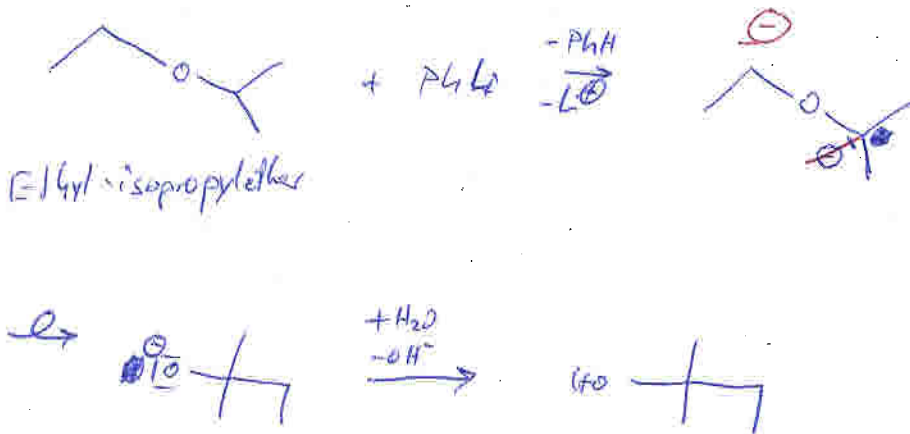 O + PhLi -PhH O
-Li⊕ ⊖
⊖
Ethyl-isopropylether
⊖ +H₂O
|O -OH⁻ HO